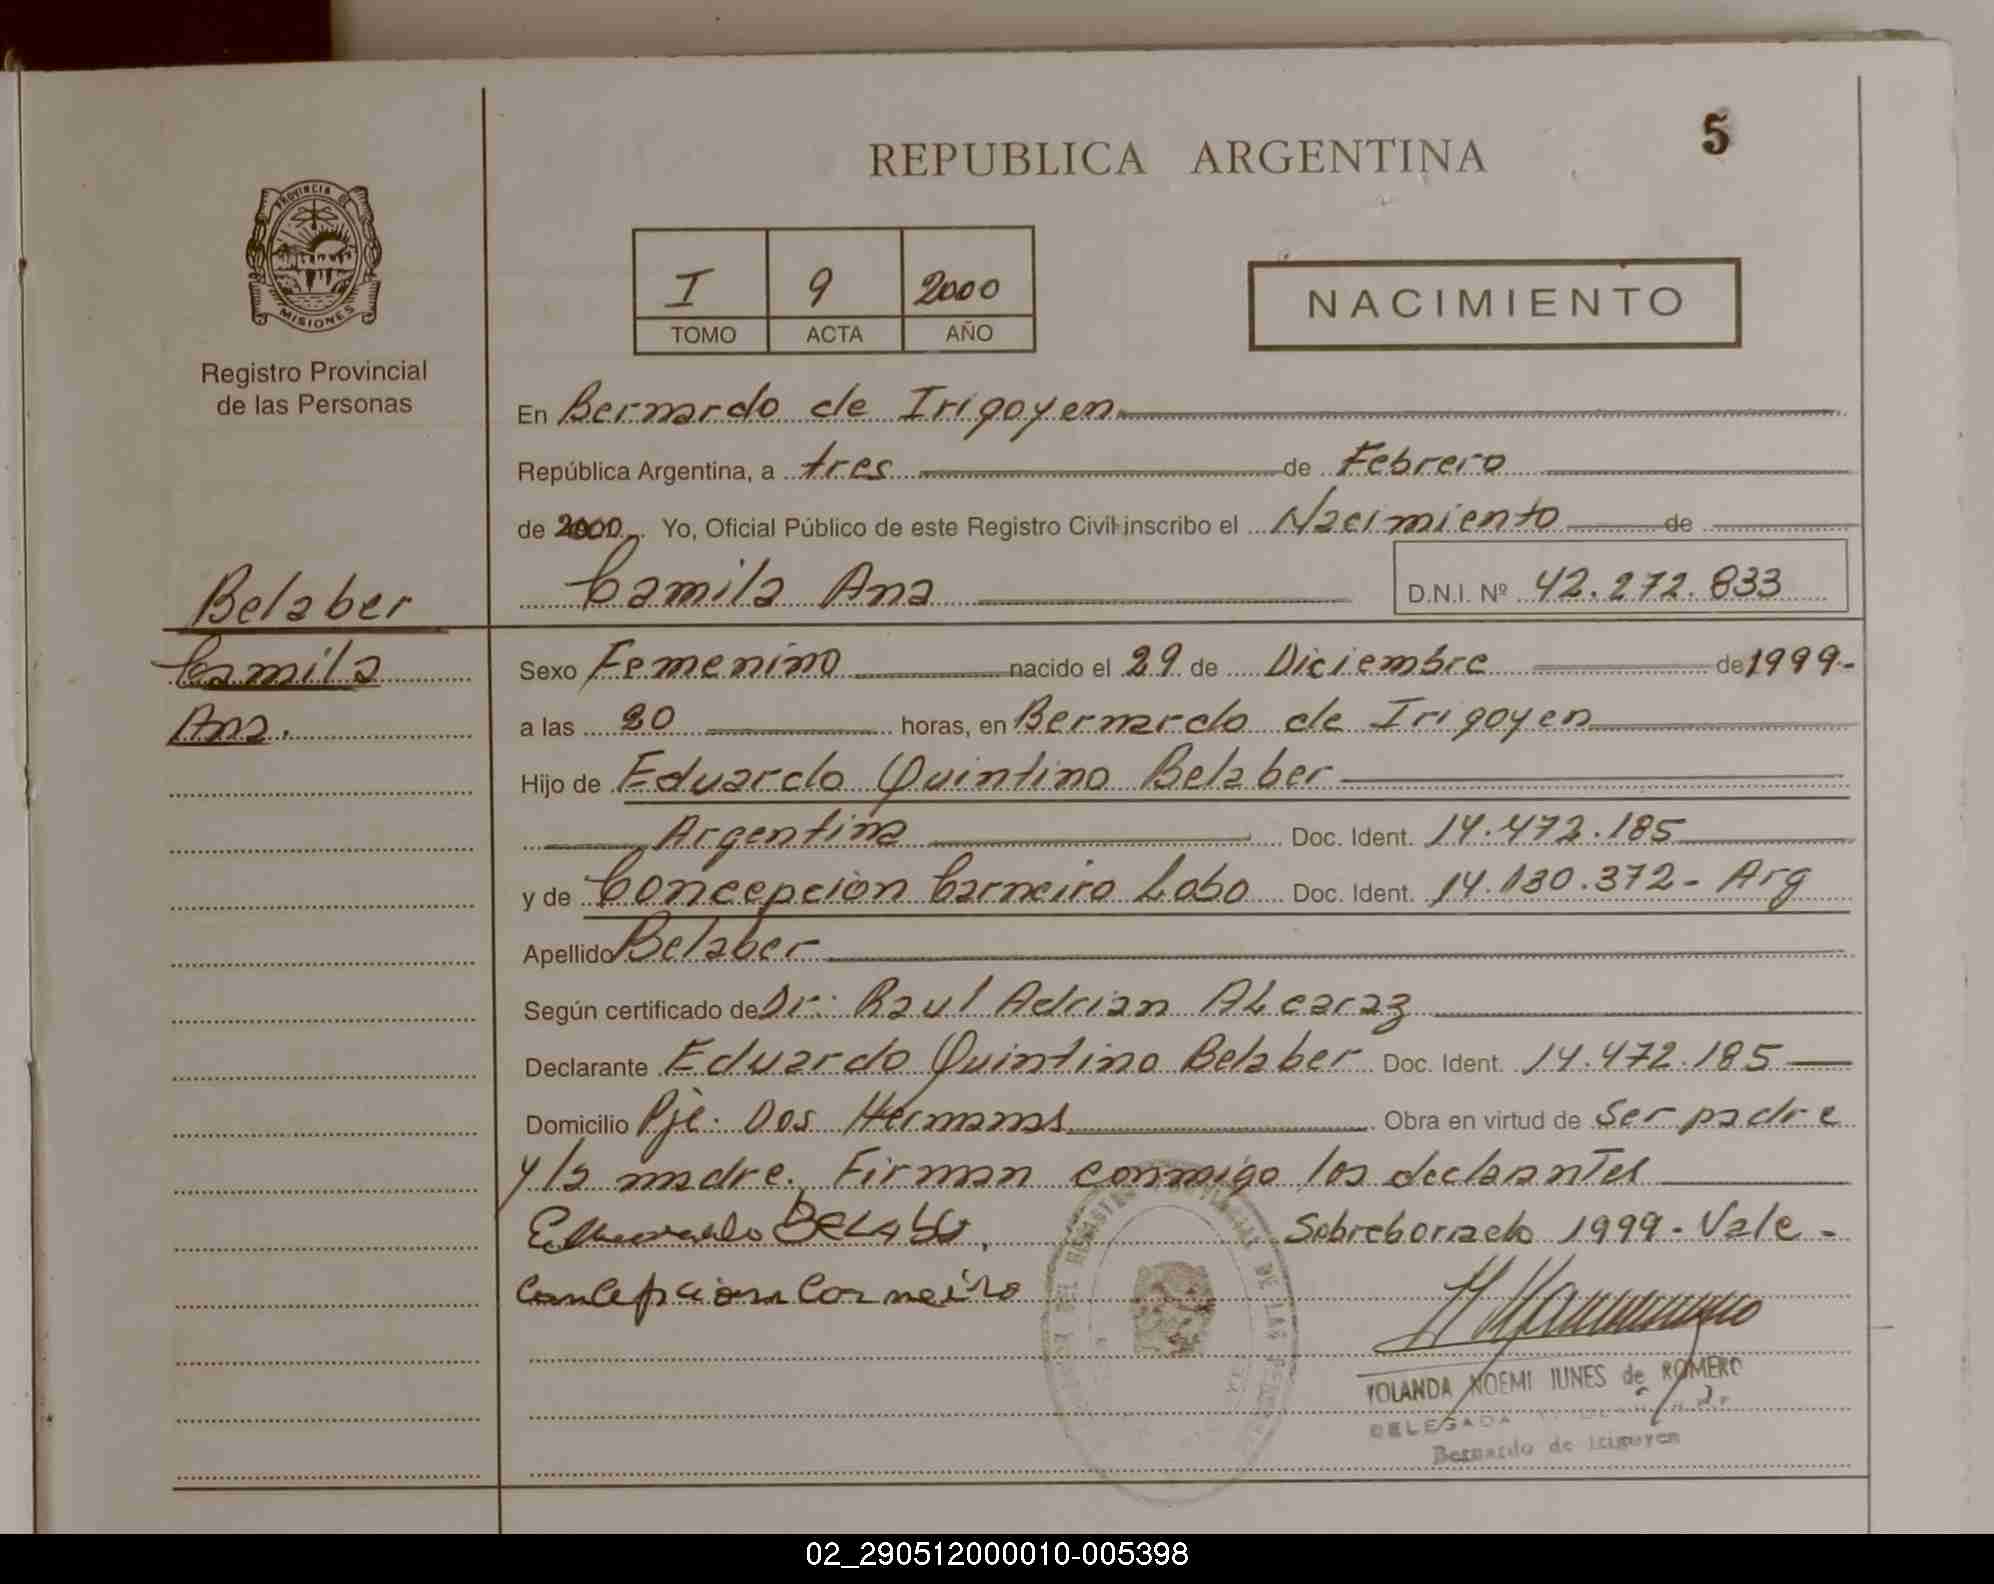 5
REPUBLICA ARGENTINA
PROVINCIA DE
MISIONES
Registro Provincial
de las Personas
I 9 2000
TOMO ACTA AÑO
NACIMIENTO
En Bernardo de Irigoyen
República Argentina, a tres de Febrero
de 2000 Yo, Oficial Público de este Registro Civil inscribo el Nacimiento de
Camila Ana D.N.I. Nº 42.272.833
Belaber
Camila
Ana.
Sexo Femenino nacido el 29 de Diciembre de 1999.-
a las 20 horas, en Bernardo de Irigoyen
Hijo de Eduardo Quintino Belaber
Argentina Doc. Ident. 14.472.185
y de Concepción Carneiro Lobo Doc. Ident. 14.130.372- Arg
Apellido Belaber
Según certificado de Dr: Raul Adrian Alcaraz
Declarante Eduardo Quintino Belaber Doc. Ident. 14.472.185
Domicilio Pje. Dos Hermanas Obra en virtud de Ser padre
y la madre. Firman conmigo los declarantes
Eduardo BELABER. Sobreborrado 1999- Vale-
Concepcion Carneiro
YOLANDA NOEMI IUNES de ROMERO
DELEGADA
Bernardo de Irigoyen
02_290512000010-005398